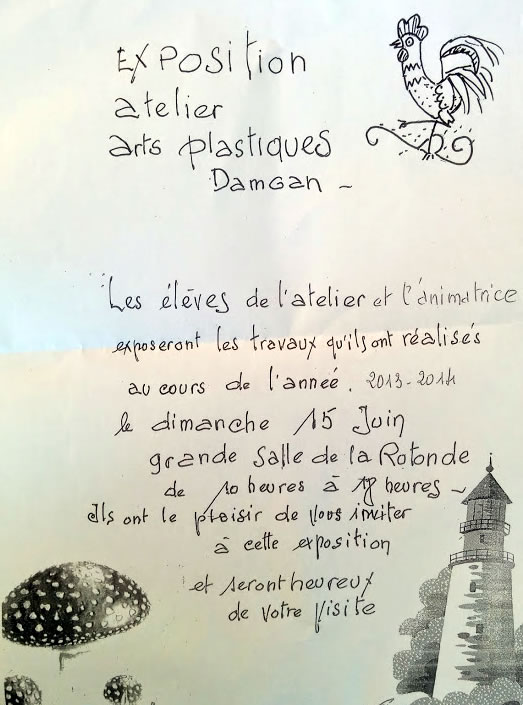 EXPOSition
atelier
arts plastiques
DamGan ~
Les élèves de l'atelier et l'animatrice
exposeront les travaux qu'ils ont réalisés
au cours de l'anneé. 2013-2014
le dimanche 15 Juin
grande Salle de la Rotonde
de 10 heures à heures ~
Ils ont le plaisir de Vous inviter
à cette exposition
et seront heureux
de votre visite